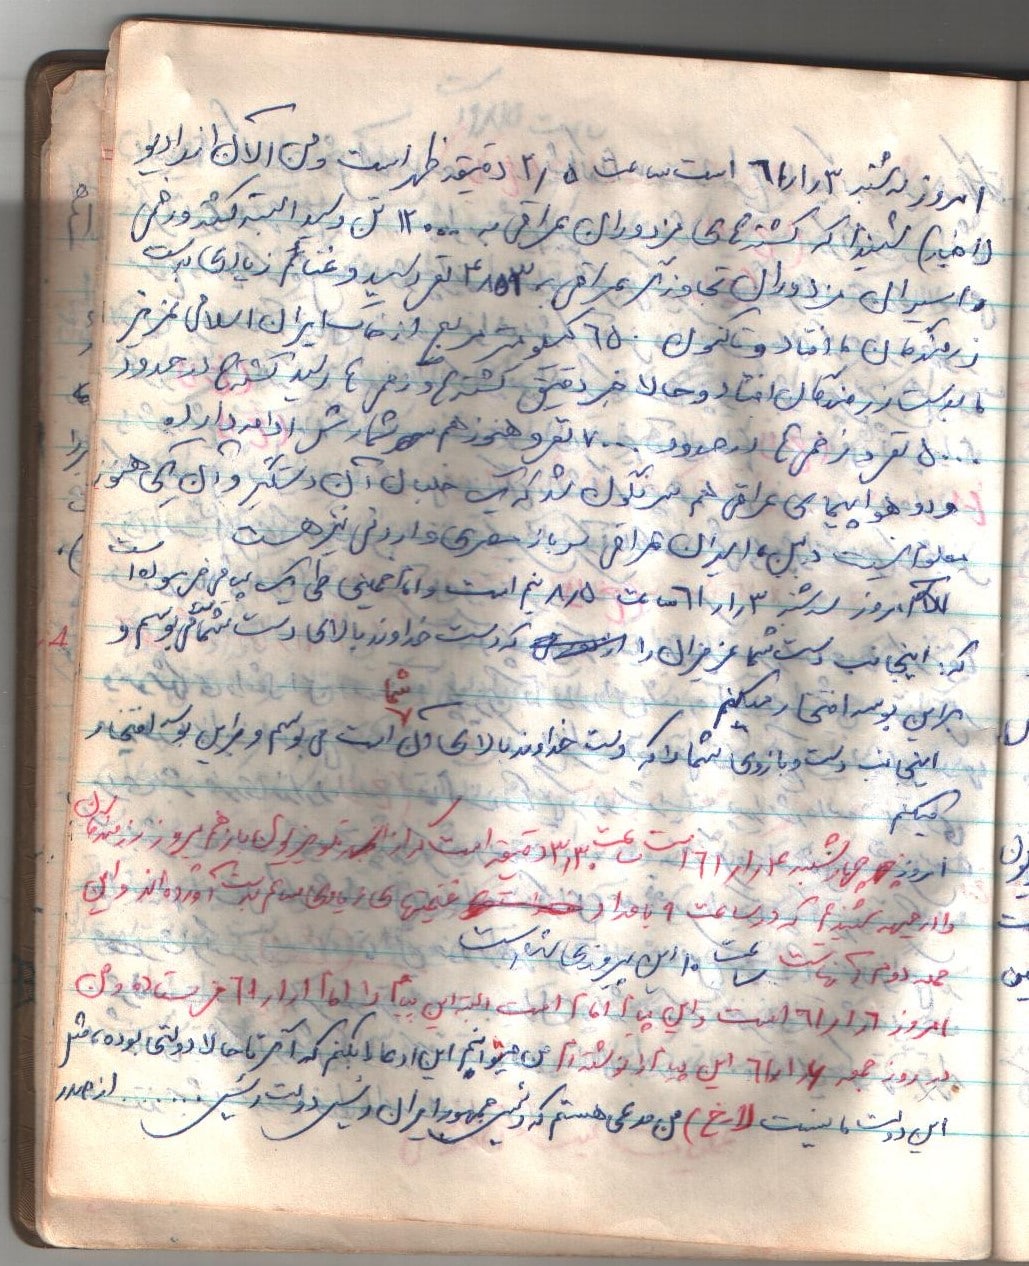 امروز سه شنبه ۳ر۱ر۶۱ است ساعت ۵ر۲ دقیقه ظهر است و من الآن از رادیو
(اخبار) شنیدم که کشته های مزدوران عراقی به ۱۲۰۰۰ تن رسید البته کشته و زخمی
و اسیران مزدوران تجاوزگر عراقی به ۴۸۵۳ نفر رسید و غنائم زیادی بدست
رزمندگان ما افتاد و تاکنون ۶۵۰ کیلومتر مربع از خاک ایران اسلامی عزیز
ما بدست رزمندگان افتاد و حالا خبر دقیق کشته ها و زخمی ها رسید کشته ها در حدود
۵۰۰۰ نفر و زخمی ها در حدود ۷۰۰۰ نفر و هنوز هم شمارش ادامه دارد
و دو هواپیمای عراقی هم سرنگون شد که یک خلبان آن دستگیر و آن یکی هنوز
معلوم نیست در بین اسیران عراقی سرباز مصری و اردنی نیز هست
امروز سه شنبه ۳ر۱ر۶۱ ساعت ۵ر۸ شب است و امام خمینی طی یک پیامی فرموده است
که: اینجانب دست شما عزیزان را که دست خداوند بالای دست شماست می بوسم و
بر این بوسه افتخار میکنم
شما
اینجانب دست و بازوی شما را که دست خداوند بالای آن است می بوسم و بر این بوسه افتخار
میکنم
امروز چهارشنبه ۴ر۱ر۶۱ است ساعت ۳ر۳۰ دقیقه است که از تلویزیون باز هم پیروزی رزمندگان
را در جبهه شنیدم که در ساعت ۹ بامداد غنیمتهای زیادی هم بدست آورده اند و این
حمله دوم آنهاست ساعت ۱۰ این پیروزی شده است
امروز ۶ر۱ر۶۱ است و این پیام امام است البته این پیام را امام ۱ر۱ر۶۱ فرستاده و من
در روز جمعه ۶ر۱ر۶۱ این پیام را نوشته ام من میتوانم این ادعا را بکنم که آخر تا حالا دولتی بوده مثل
این دولت ما نیست (لاخ) من مدعی هستم که رئیس جمهور ایران رئیس دولت رئیس ...... از صدر